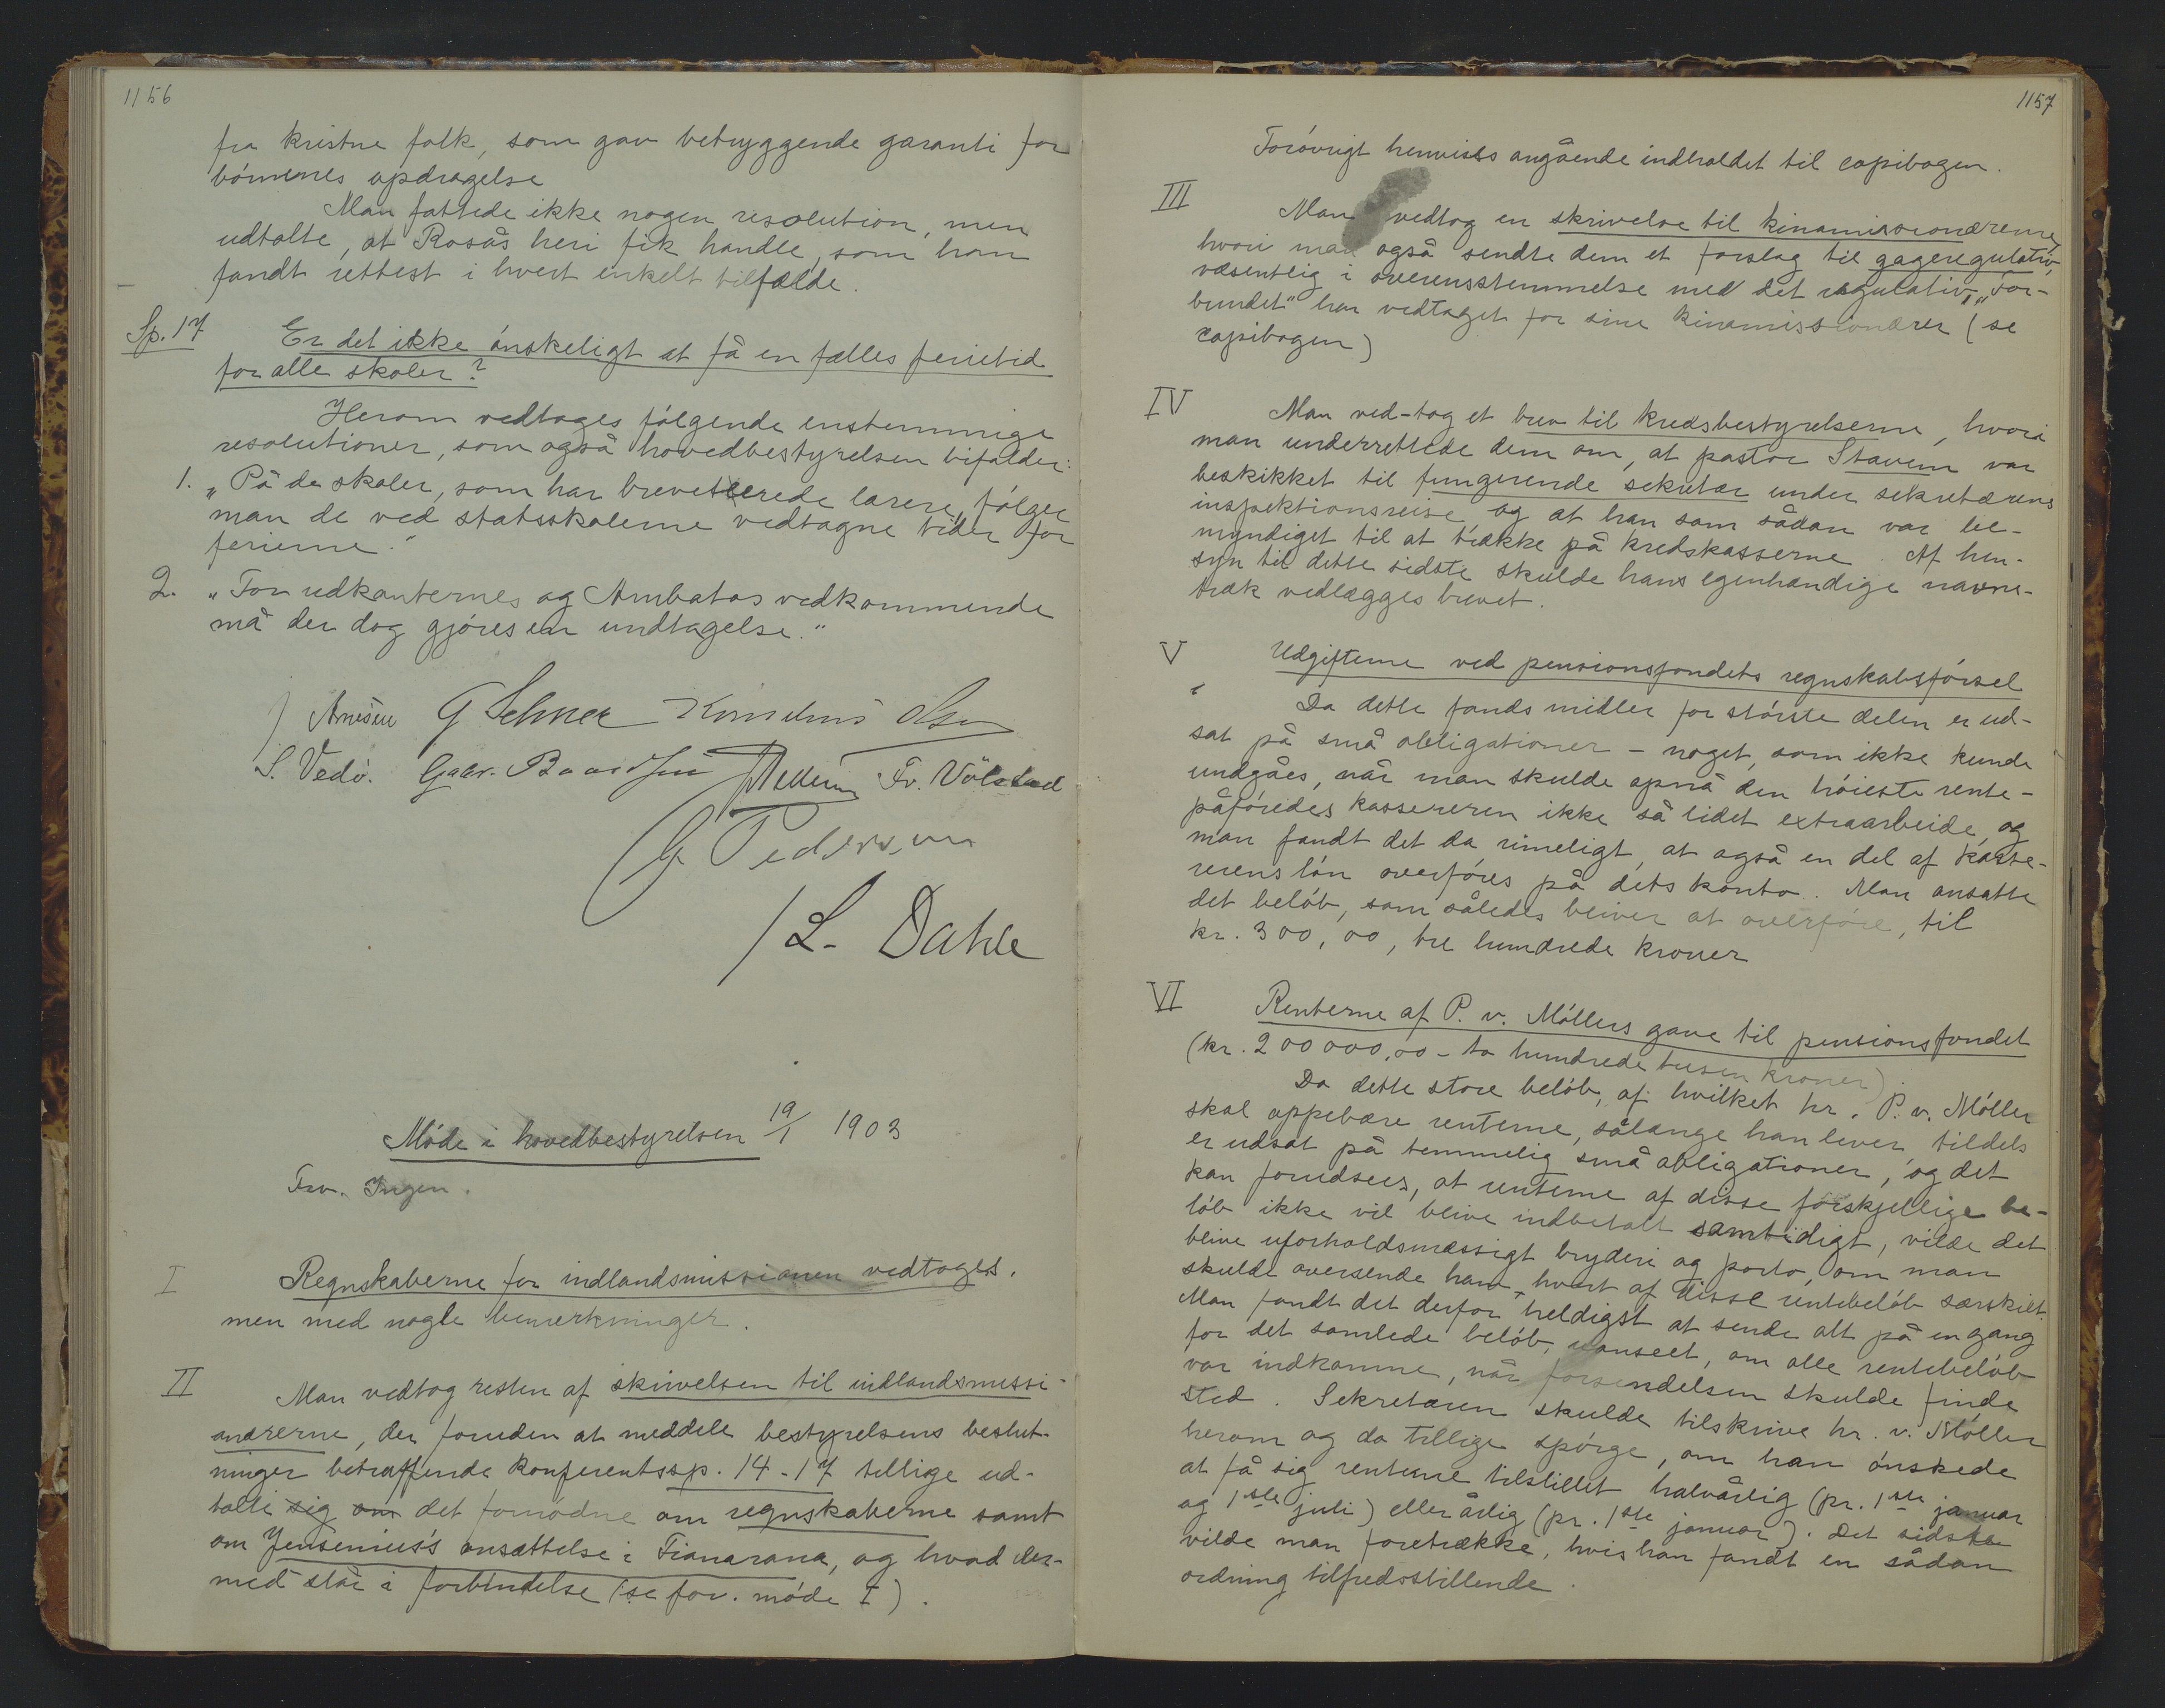 1156
fra kristne folk, som gav betryggende garanti for
börnenes opdragelse
Man fattede ikke nogen resolution, men
udtalte, at Rosås heri fik handle, som han
fandt rettest i hvert enkelt tilfælde.
Sp. 17 Er det ikke ónskeligt at få en fælles ferietid
for alle skoler?
Herom vedtoges fólgende enstemmige
resolutioner, som også hovedbestyrelsen bifalder:
1. „På de skoler, som har breveterede lærere, fólger
man de ved statsskolerne vedtagne tider for
ferierne."
2. „For udkanternes og Ambatos vedkommende
må der dog gjóres en undtagelse."
J Amèsen
S. Vedö. Fr. Völstad
G Pedersen
/ L. Dahle
Móde i hovedbestyrelsen 19/1 1903
Frv. Ingen.
I Regnskaberne for indlandsmissionen vedtoges.
men med nogle bemerkninger.
II Man vedtog resten af skrivelsen til indlandsmissi-
onærerne, der foruden at meddele bestyrelsens beslut-
ninger betræffende konferentssp. 14-17 tillige ud-
talte sig om det fornödne om regnskaberne samt
om Jensenius's ansættelse i Fianarana, og hvad der-
med står i forbindelse (se for. móde I).
1157
Forövrigt henvises angående indholdet til copibogen.
III Man vedtog en skrivelse til kinamissionærerne,
hvori man også sendte dem et forslag til gageregulativ,
væsentlig i overensstemmelse med det regulativ, „For-
bundet" har vedtaget for sine kinamissionærer (se
copibogen)
IV Man ved-tog et brev til kredsbestyrelserne, hvori
man underrettede dem om, at pastor Stavem var
beskikket til fungerende sekretær under sekretærens
inspektionsreise og at han som sådan var be-
myndiget til at trække på kredskasserne. Af hen-
syn til dette sidste skulde hans egenhændige navne-
træk vedlægges brevet.
V Udgifterne ved pensionsfondets regnskabsförsel
Da dette fonds midler for störste delen er ud-
sat på små obligationer - noget, som ikke kunde
undgåes, når man skulde opnå den höieste rente -
påföredes kassereren ikke så lidet extraarbeide, og
man fandt det da rimeligt, at også en del af kasse-
rerens lón overföres på dets konto. Man ansatte
det belöb, som således bliver at overföre, til
kr. 300,00, tre hundrede kroner
VI Renterne af P. v. Möllers gave til pensionsfondet
(kr. 200000,00 - to hundrede tusen kroner).
Da dette store belöb, af hvilket hr. P. v. Möller
skal oppebære renterne, sålænge han lever, tildels
er udsat på temmelig små obligationer, og det
kan forudsees, at renterne af disse forskjellige be-
löb ikke vil blive indbetalt samtidigt, vilde det
blive uforholdsmæssigt bryderi og porto, om man
skulde oversende ham hvert af disse rentebelöb særskilt.
Man fandt det derfor heldigst at sende alt på en gang
for det samlede belöb, uanseet, om alle rentebelöb
var indkomne, når forsendelsen skulde finde
sted. Sekretæren skulde tilskrive hr. v. Möller
herom og da tillige spörge, om han ónskede
at få sig renterne tilstillet halvårlig (pr. 1ste januar
og 1ste juli) eller årlig (pr. 1ste januar). Det sidste
vilde man foretrække, hvis han fandt en sådan
ordning tilfredsstillende.